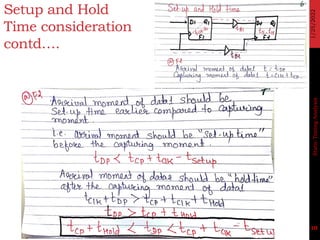 Setup and Hold
Time consideration
contd....
6
Set up and Hold Time
D1 Q1
D2 Q2
F1
F2
@ F2
Arrival moment of data1 t : tDP
Capturing moment of data1
7
@F2
Arrival moment of data1 should be
Set-up time earlier compared to capturing
moment
i.e. arrival moment should be "set-up time"
before the capturing moment.
tDP < tCP + tClK - tSetup
Arrival moment of data2 should be "hold time"
after the capturing moment of data1
tClK + tDP > tCP + tClK + tHold
tDP > tCP + tHold
tCP + tHold < tDP < tCP + tClK - tSetup
1/26/2022
Static Timing Analysis
10